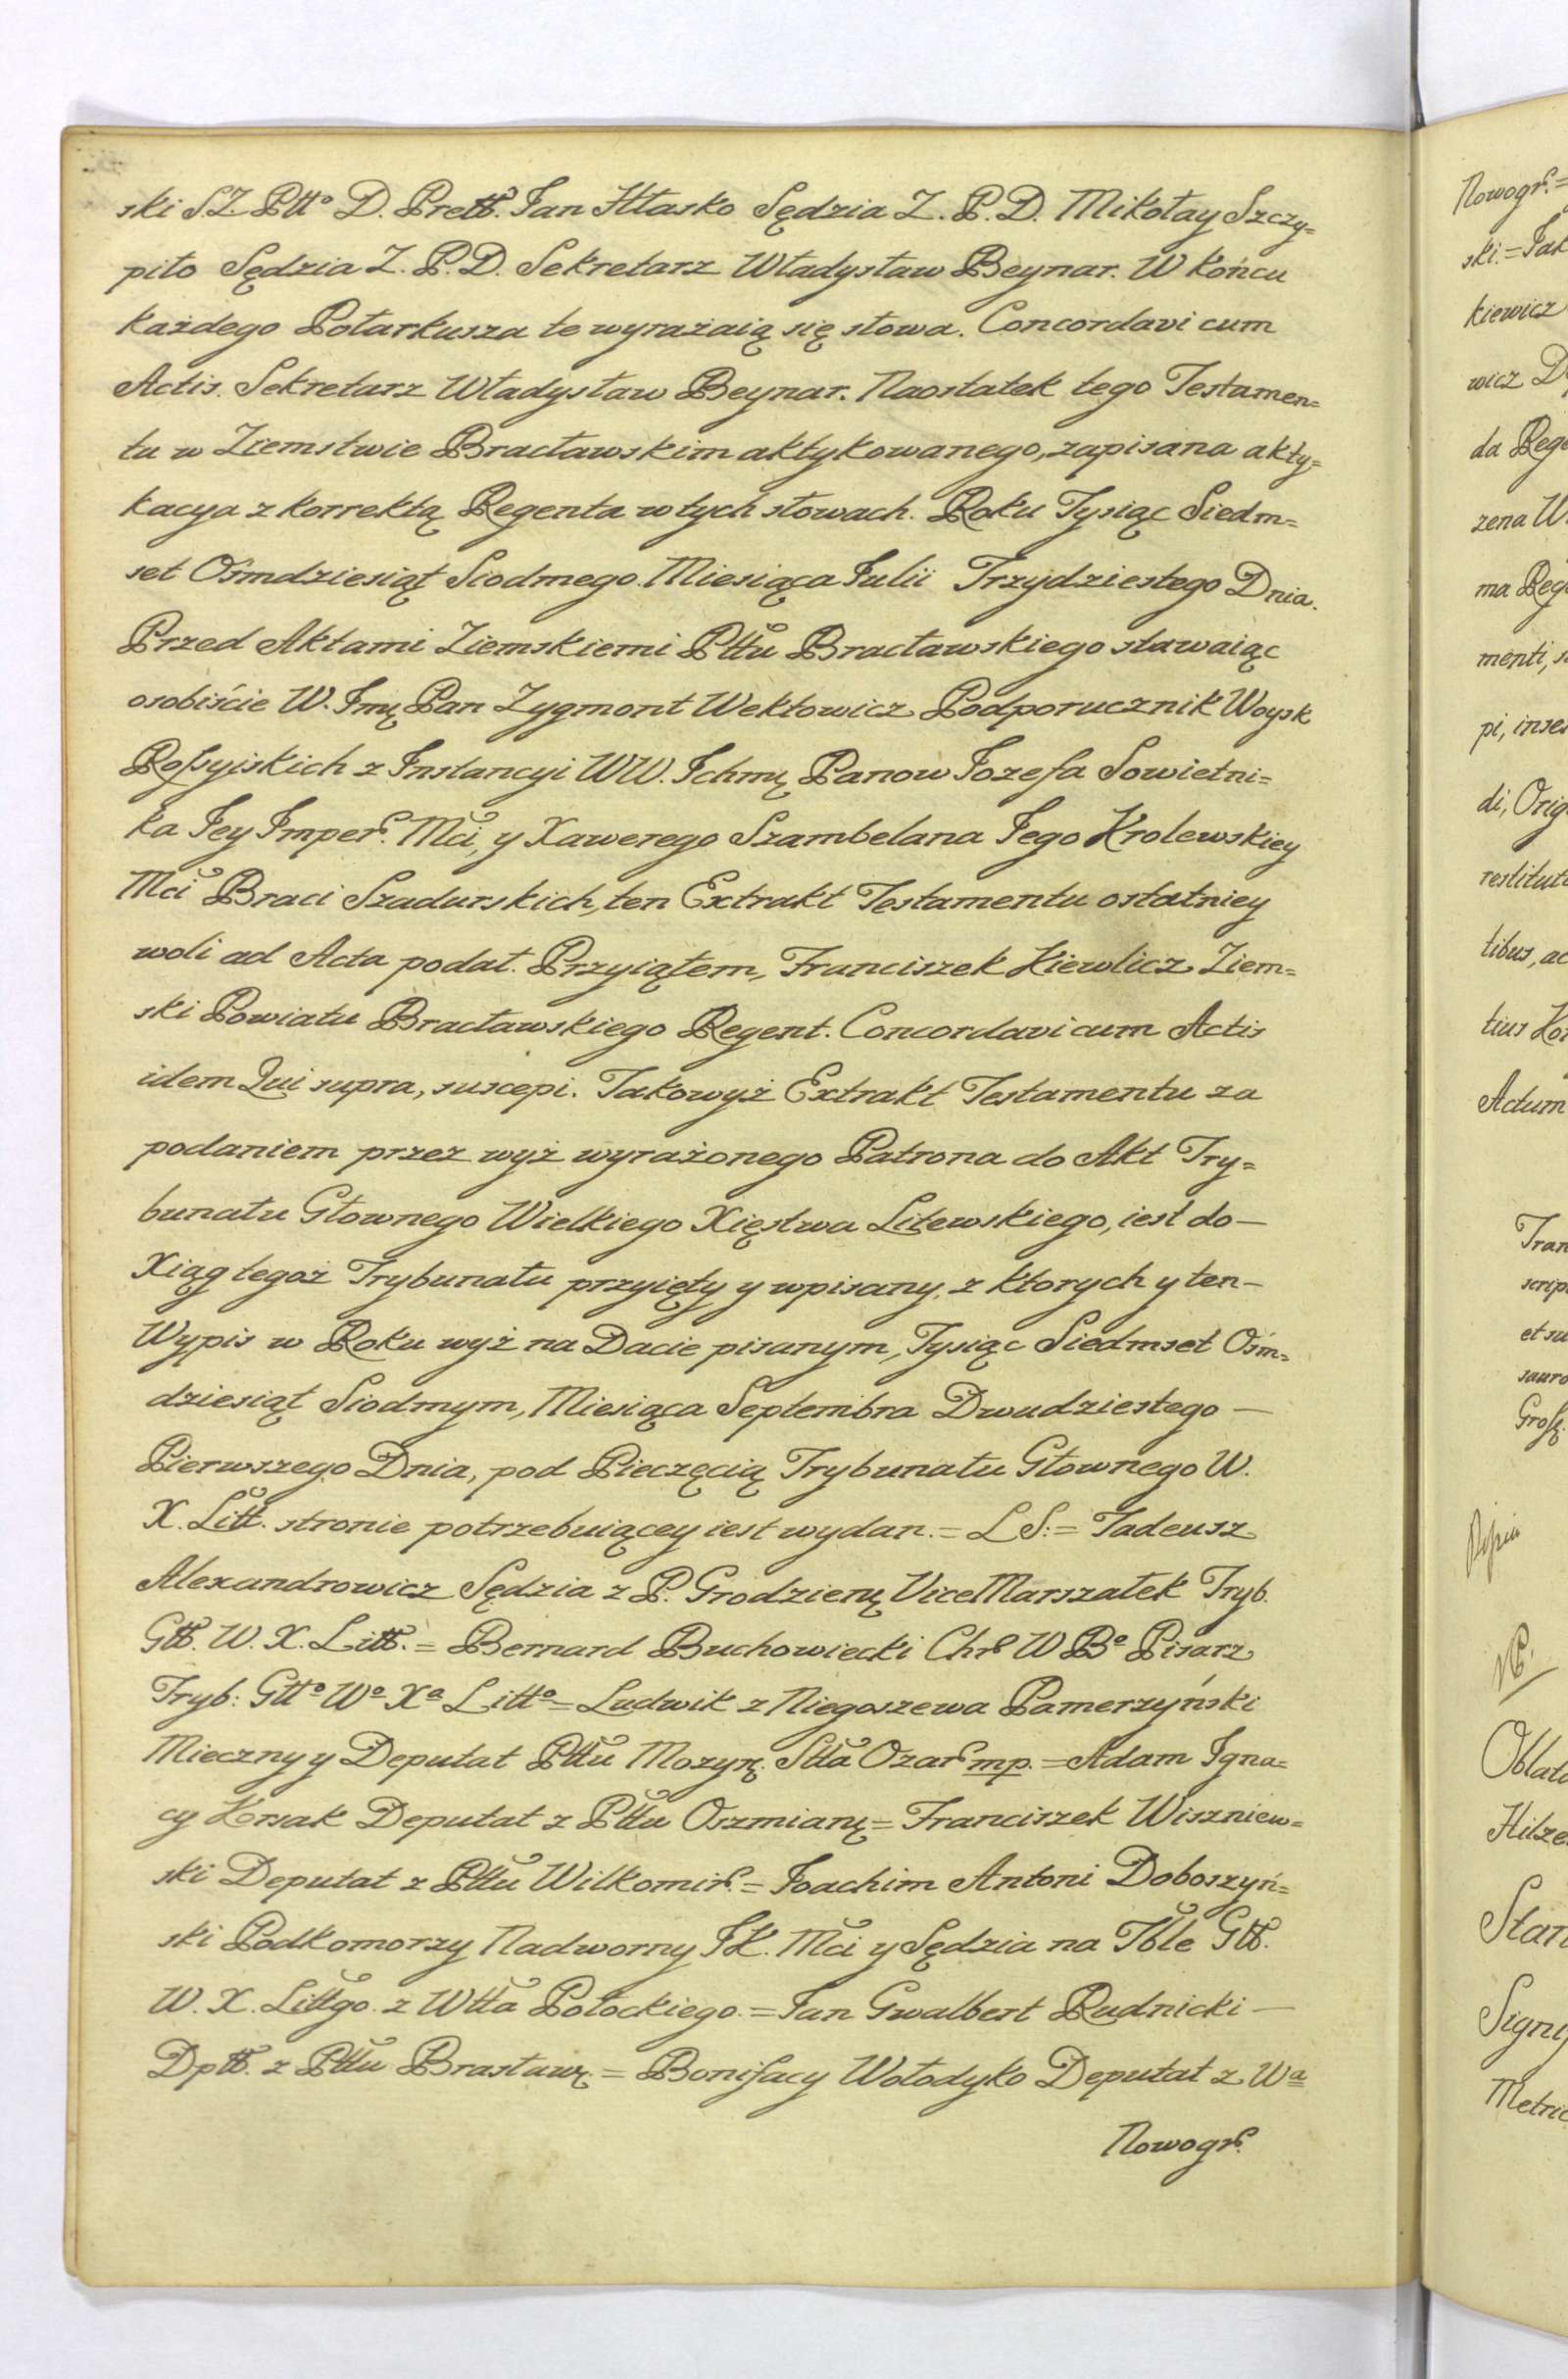 ski SZ. Pttº D. Prett. Jan Hłasko Sędzia Z. P. D. Mikołay Szczy=
piło Sędzia Z. P. D. Sekretarz Władysław Beynar. W końcu
każdego Połarkusza te wyrażaią się słowa. Concordavi cum
Actis. Sekretarz Władysław Beynar. Naostatek tego Testamen=
tu w Ziemstwie Bracławskim aktykowanego, zapisana akty=
kacya z korrektą Regenta w tych słowach. Roku Tysiąc Siedm=
set Ośmdziesiąt Siodmego Miesiąca Julii Trzydziestego Dnia.
Przed Aktami Ziemskiemi Pttu Bracławskiego stawaiąc
osobiście W. Jmę Pan Zygmont Wektowicz Podporucznik Woysk
Rossyiskich z Instancyi WW. Ichmę Panow Jozefa Sowietni=
ka Jey Imper. Mci, y Xawerego Szambelana Jego Krolewskiey
Mci Braci Szadurskich, ten Extrakt Testamentu ostatniey
woli ad Acta podał. Przyiąłem, Franciszek Kiewlicz Ziem=
ski Powiatu Bracławskiego Regent. Concordavi cum Actis
idem Qui supra, suscepi. Takowyż Extrakt Testamentu za
podaniem przez wyż wyrażonego Patrona do Akt Try=
bunału Głownego Wielkiego Xięstwa Litewskiego, iest do—
Xiąg tegoż Trybunału przyięty y wpisany, z ktorych y ten—
Wypis w Roku wyż na Dacie pisanym, Tysiąc Siedmset Ośm=
dziesiąt Siodmym, Miesiąca Septembra Dwudziestego—
Pierwszego Dnia, pod Pieczęcią Trybunału Głownego W.
X. Litt. stronie potrzebuiącey iest wydan. = LS: = Tadeusz
Alexandrowicz Sędzia z P. Grodzienę ViceMarszałek Tryb.
Gtt. W. X. Litt. = Bernard Buchowiecki Chr. W Bº Pisarz
Tryb: Gttº Wº Xª Littº = Ludwik z Niegoszewa Pamerzyński
Mieczny y Deputat Pttu Mozyrę. Stta Ozar. mp. = Adam Igna=
cy Korsak Deputat z Pttu Oszmianę = Franciszek Wiszniew=
ski Deputat z Pttu Wilkomir. = Joachim Antoni Doboszyń=
ski Podkomorzy Nadworny JK. Mci y Sędzia na Tble Gtt.
W. X. Littgo. z Wtta Połockiego. = Jan Gwalbert Rudnicki—
Dptt. z Pttu Brasławę = Bonifacy Wołodyko Deputat z Wª
Nowogr.
Nowogr. =
ski. = Jak
kiewicz
wicz
da Reg
zena W
ma Reg
menti, s
pi, inse
di, Orig
restitut
tibus, ac
tius
Actum
Tran
scrip
et su
Oblat
Hilze
Stan
Metric